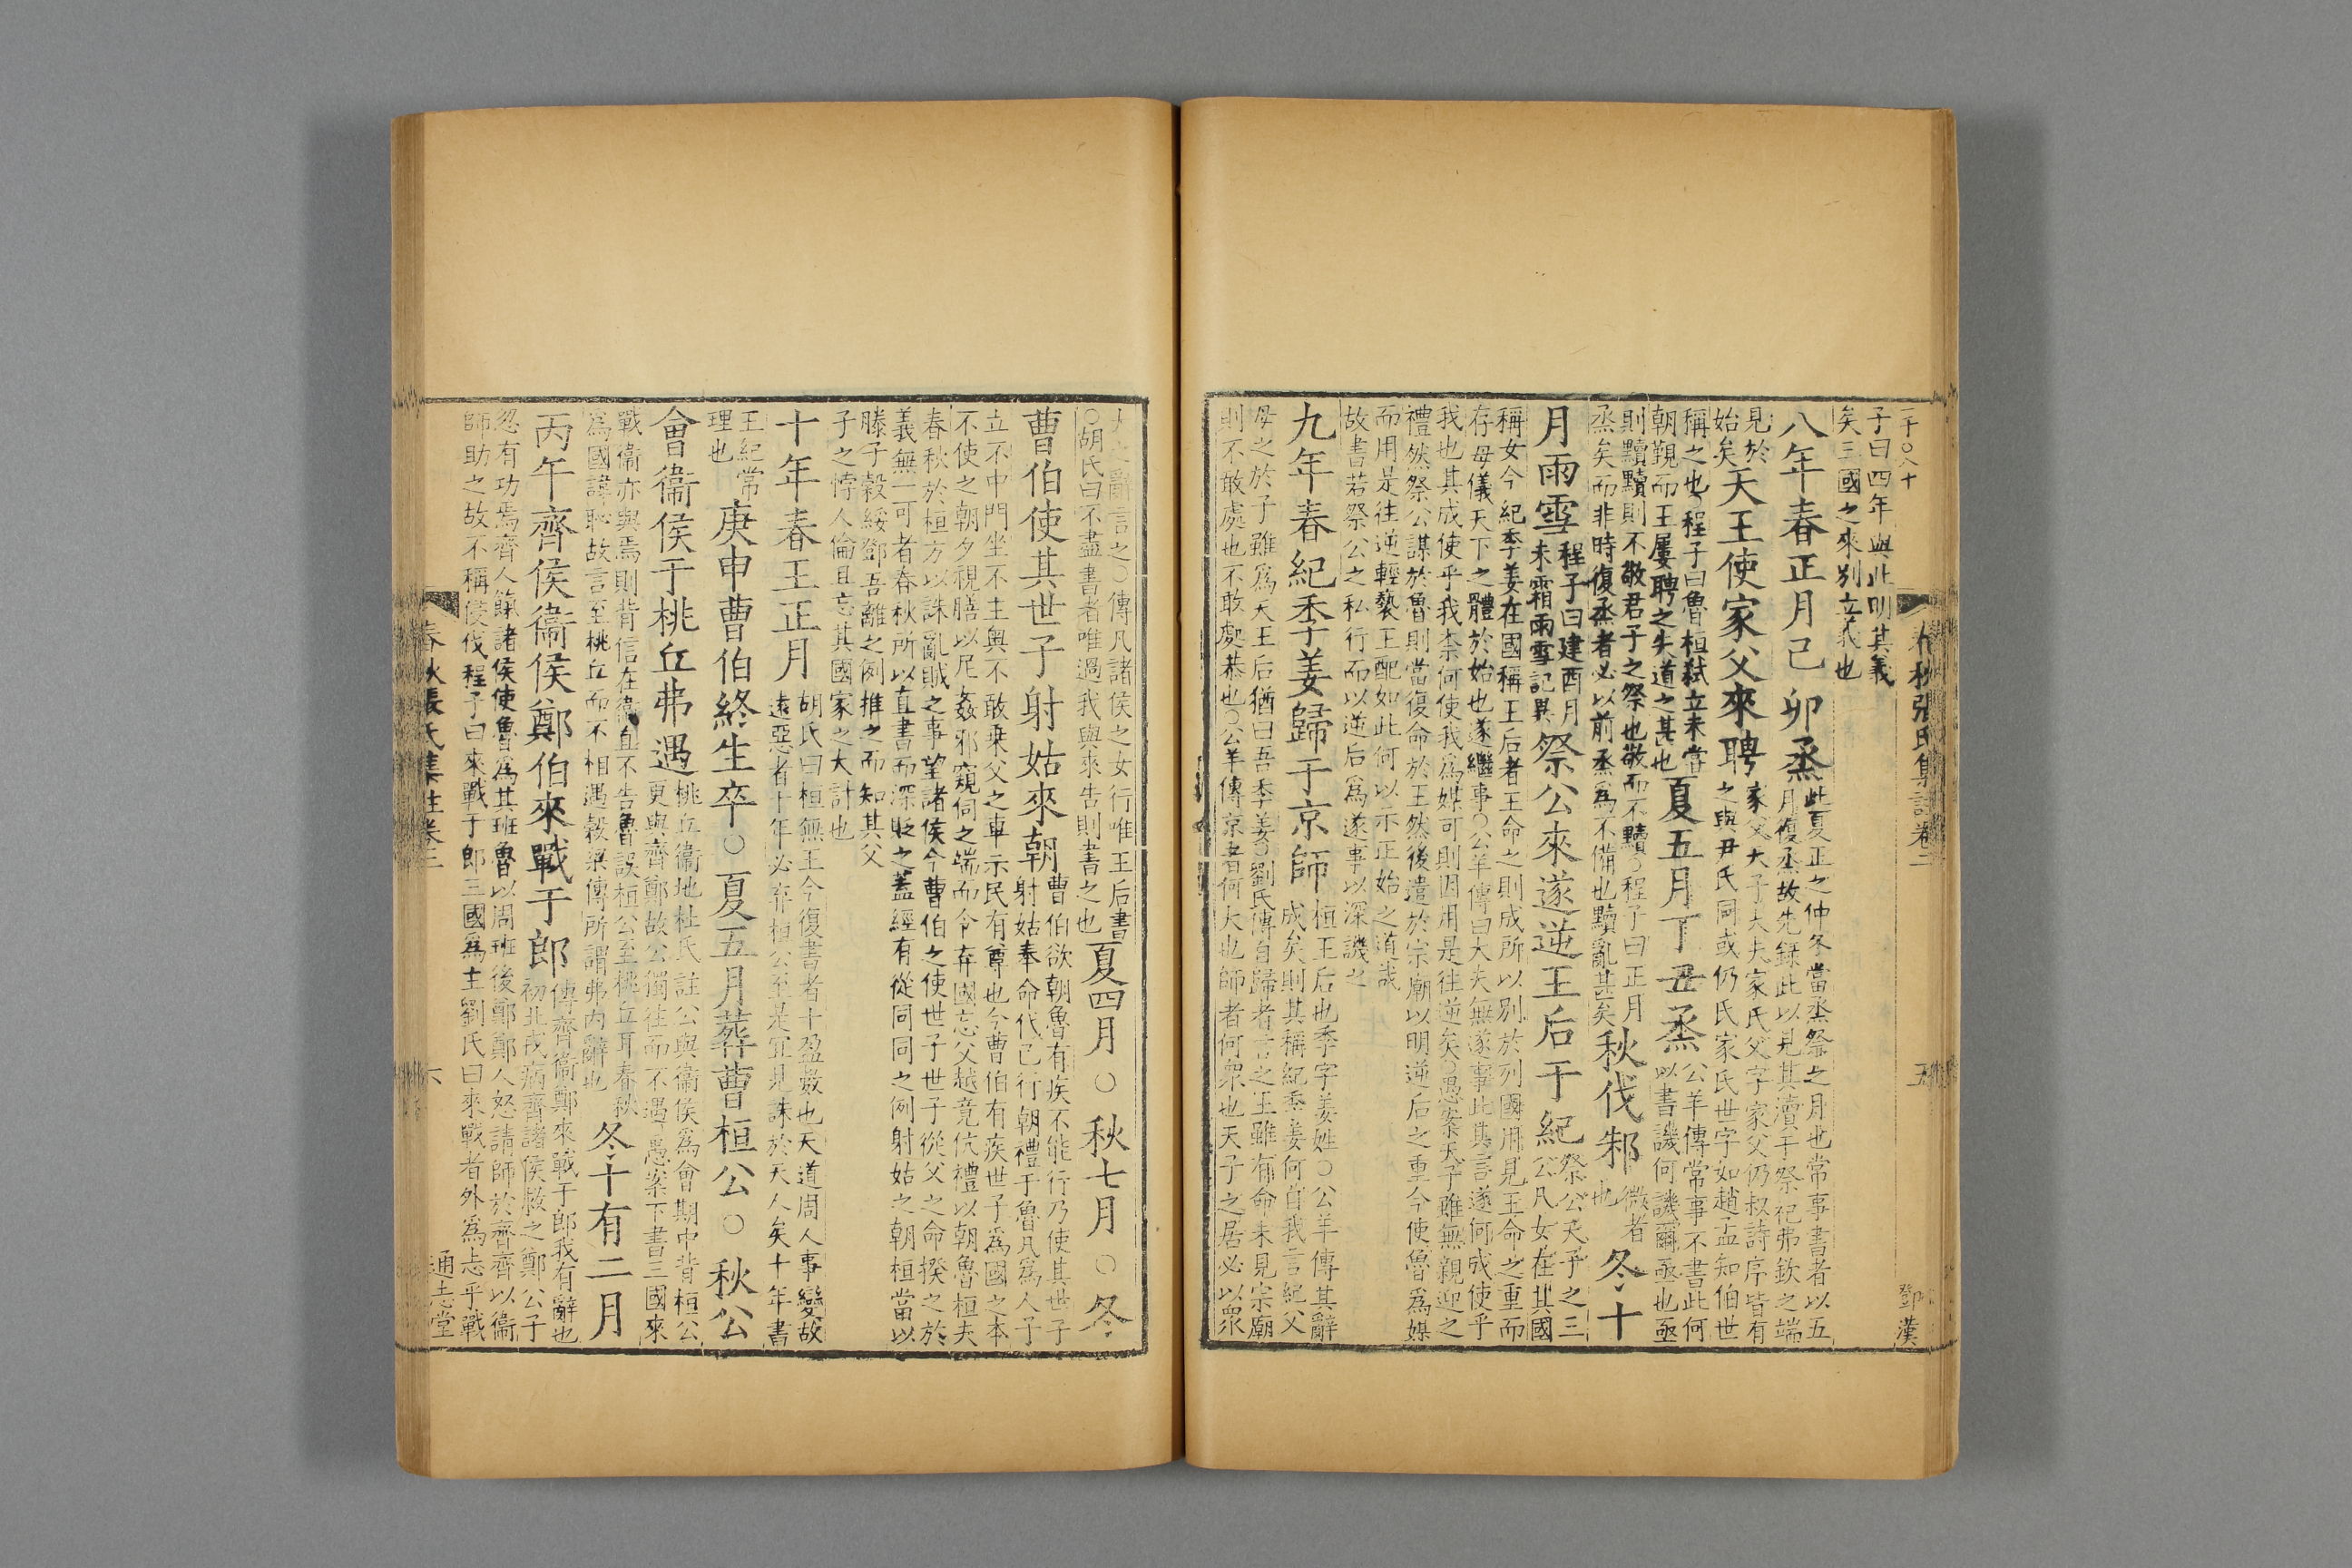 二千〇八十
春秋張氏集註卷二
五
鄧漢
子曰四年與此明其義
矣三國之來別立義也
八年春正月己卯烝
此夏正之仲冬當烝祭之月也常事書者以五
月復烝故先錄此以見其瀆于祭祀弗欽之端
見於
始矣
天王使家父來聘
家父大子大夫家氏父字家父仍叔詩序皆有
之與尹氏同或仍氏家氏世字如趙孟知伯世
稱之也程子曰魯桓弒立未嘗
朝覲而王屢聘之失道之甚也
夏五月丁丑烝
公羊傳常事不書此何
以書譏何譏爾亟也亟
則黷黷則不敬君子之祭也敬而不黷○程子曰正月
烝矣而非時復烝者必以前烝爲不備也黷亂甚矣
秋伐邾
微者
也
冬十
月雨雪
程子曰建酉月
未霜雨雪記異
祭公來遂逆王后于紀
祭公天子之三
公凡女在其國
稱女今紀季姜在國稱王后者王命之則成所以別於列國用見王命之重而
存母儀天下之體於始也遂繼事○公羊傳曰大夫無遂事此其言遂何成使乎
我也其成使乎我柰何使我爲媒可則因用是往逆矣○愚案天子雖無親迎之
禮然祭公謀於魯則當復命於王然後遣於宗廟以明逆后之重今使魯爲媒
而用是往逆輕褻王配如此何以示正始之道哉
故書若祭公之私行而以逆后爲遂事以深譏之
九年春紀季姜歸于京師
桓王后也季字姜姓○公羊傳其辭
成矣則其稱紀季姜何自我言紀父
母之於子雖爲天王后猶曰吾季姜○劉氏傳自歸者言之王雖有命未見宗廟
則不敢處也不敢處恭也○公羊傳京者何大也師者何衆也天子之居必以衆
大之辭言之○傳凡諸侯之女行唯王后書
○胡氏曰不盡書者唯過我與來告則書之也
夏四月○秋七月○冬
曹伯使其世子射姑來朝
曹伯欲朝魯有疾不能行乃使其世子
射姑奉命代己行朝禮于魯凡爲人子
立不中門坐不主奧不敢乗父之車示民有尊也今曹伯有疾世子爲國之本
不使之朝夕視膳以尼姦邪窺伺之端而令弃國忘父越竟伉禮以朝魯桓夫
春秋於桓方以誅亂賊之事望諸侯今曹伯之使世子世子從父之命揆之於
義無一可者春秋所以直書而深貶之蓋經有從同同之例射姑之朝桓當以
滕子穀綏鄧吾離之例推之而知其父
子之悖人倫且忘其國家之大計也
十年春王正月
胡氏曰桓無王今復書者十盈數也天道周人事變故
遠惡者十年必弃桓公至是宜見誅於天人矣十年書
王紀常
理也
庚申曹伯終生卒○夏五月葬曹桓公○秋公
會衞侯于桃丘弗遇
桃丘衞地杜氏註公與衞侯爲會期中背桓公
更與齊鄭故公獨往而不遇○愚案下書三國來
戰衞亦與焉則背信在衞且不告魯誤桓公至桃丘耳春秋
爲國諱恥故言至桃丘而不相遇穀梁傳所謂弗內辭也
冬十有二月
丙午齊侯衞侯鄭伯來戰于郎
傳齊衞鄭來戰于郎我有辭也
初北戎病齊諸侯救之鄭公子
忽有功焉齊人餼諸侯使魯爲其班魯以周班後鄭鄭人怒請師於齊齊以衞
師助之故不稱侵伐程子曰來戰于郎三國爲主劉氏曰來戰者外爲志乎戰
春秋張氏集註卷二
六
通志堂